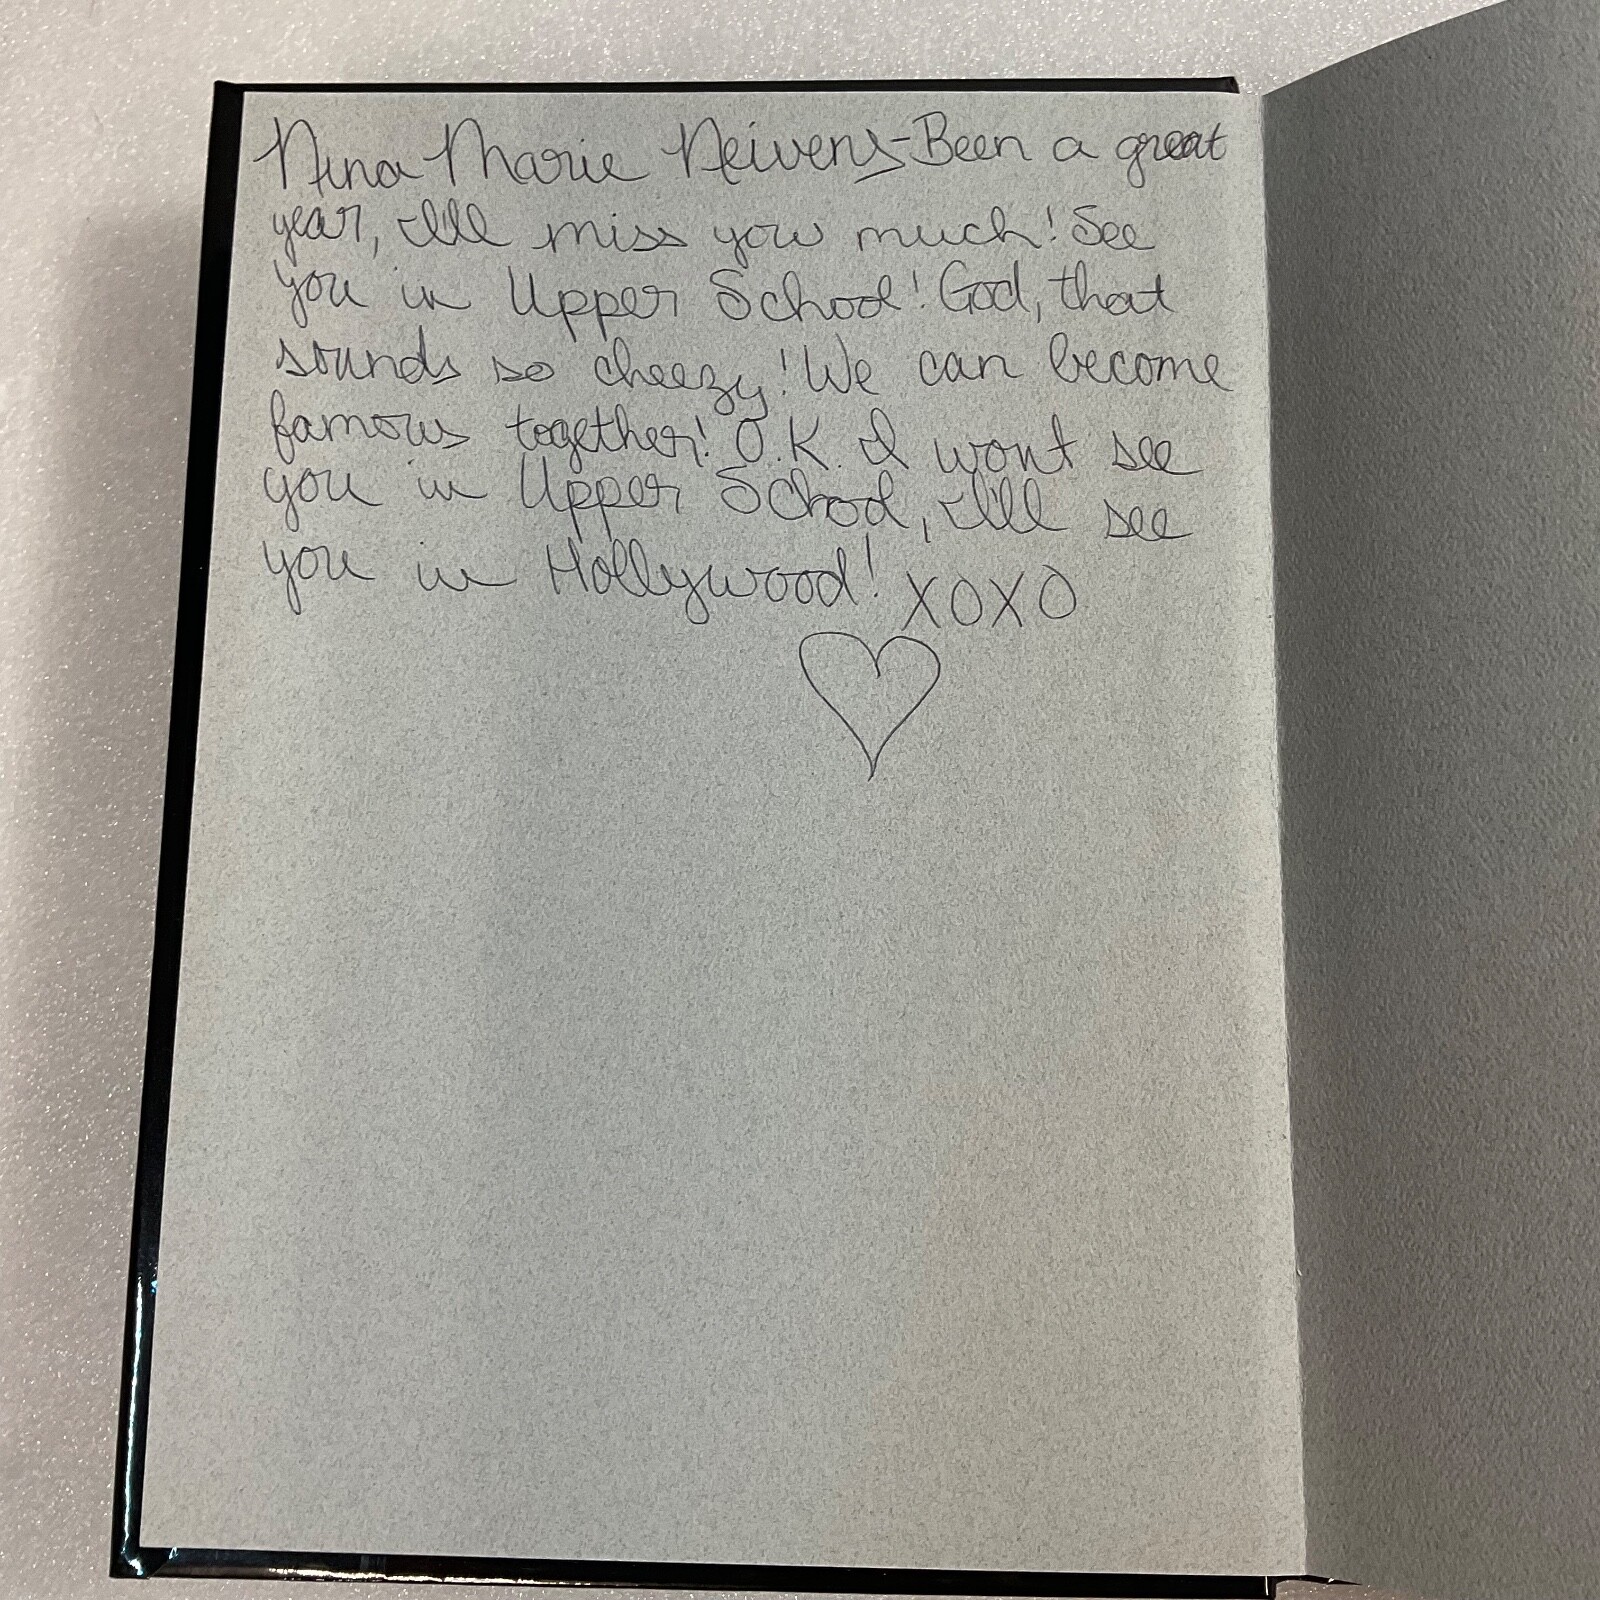 Nina Marie Neivens-Been a great
year, I'll miss you much! See
you in Upper School! God, that
sounds so cheezy! We can become
famous together! O.K. I wont see
you in Upper School, I'll see
you in Hollywood! XOXO